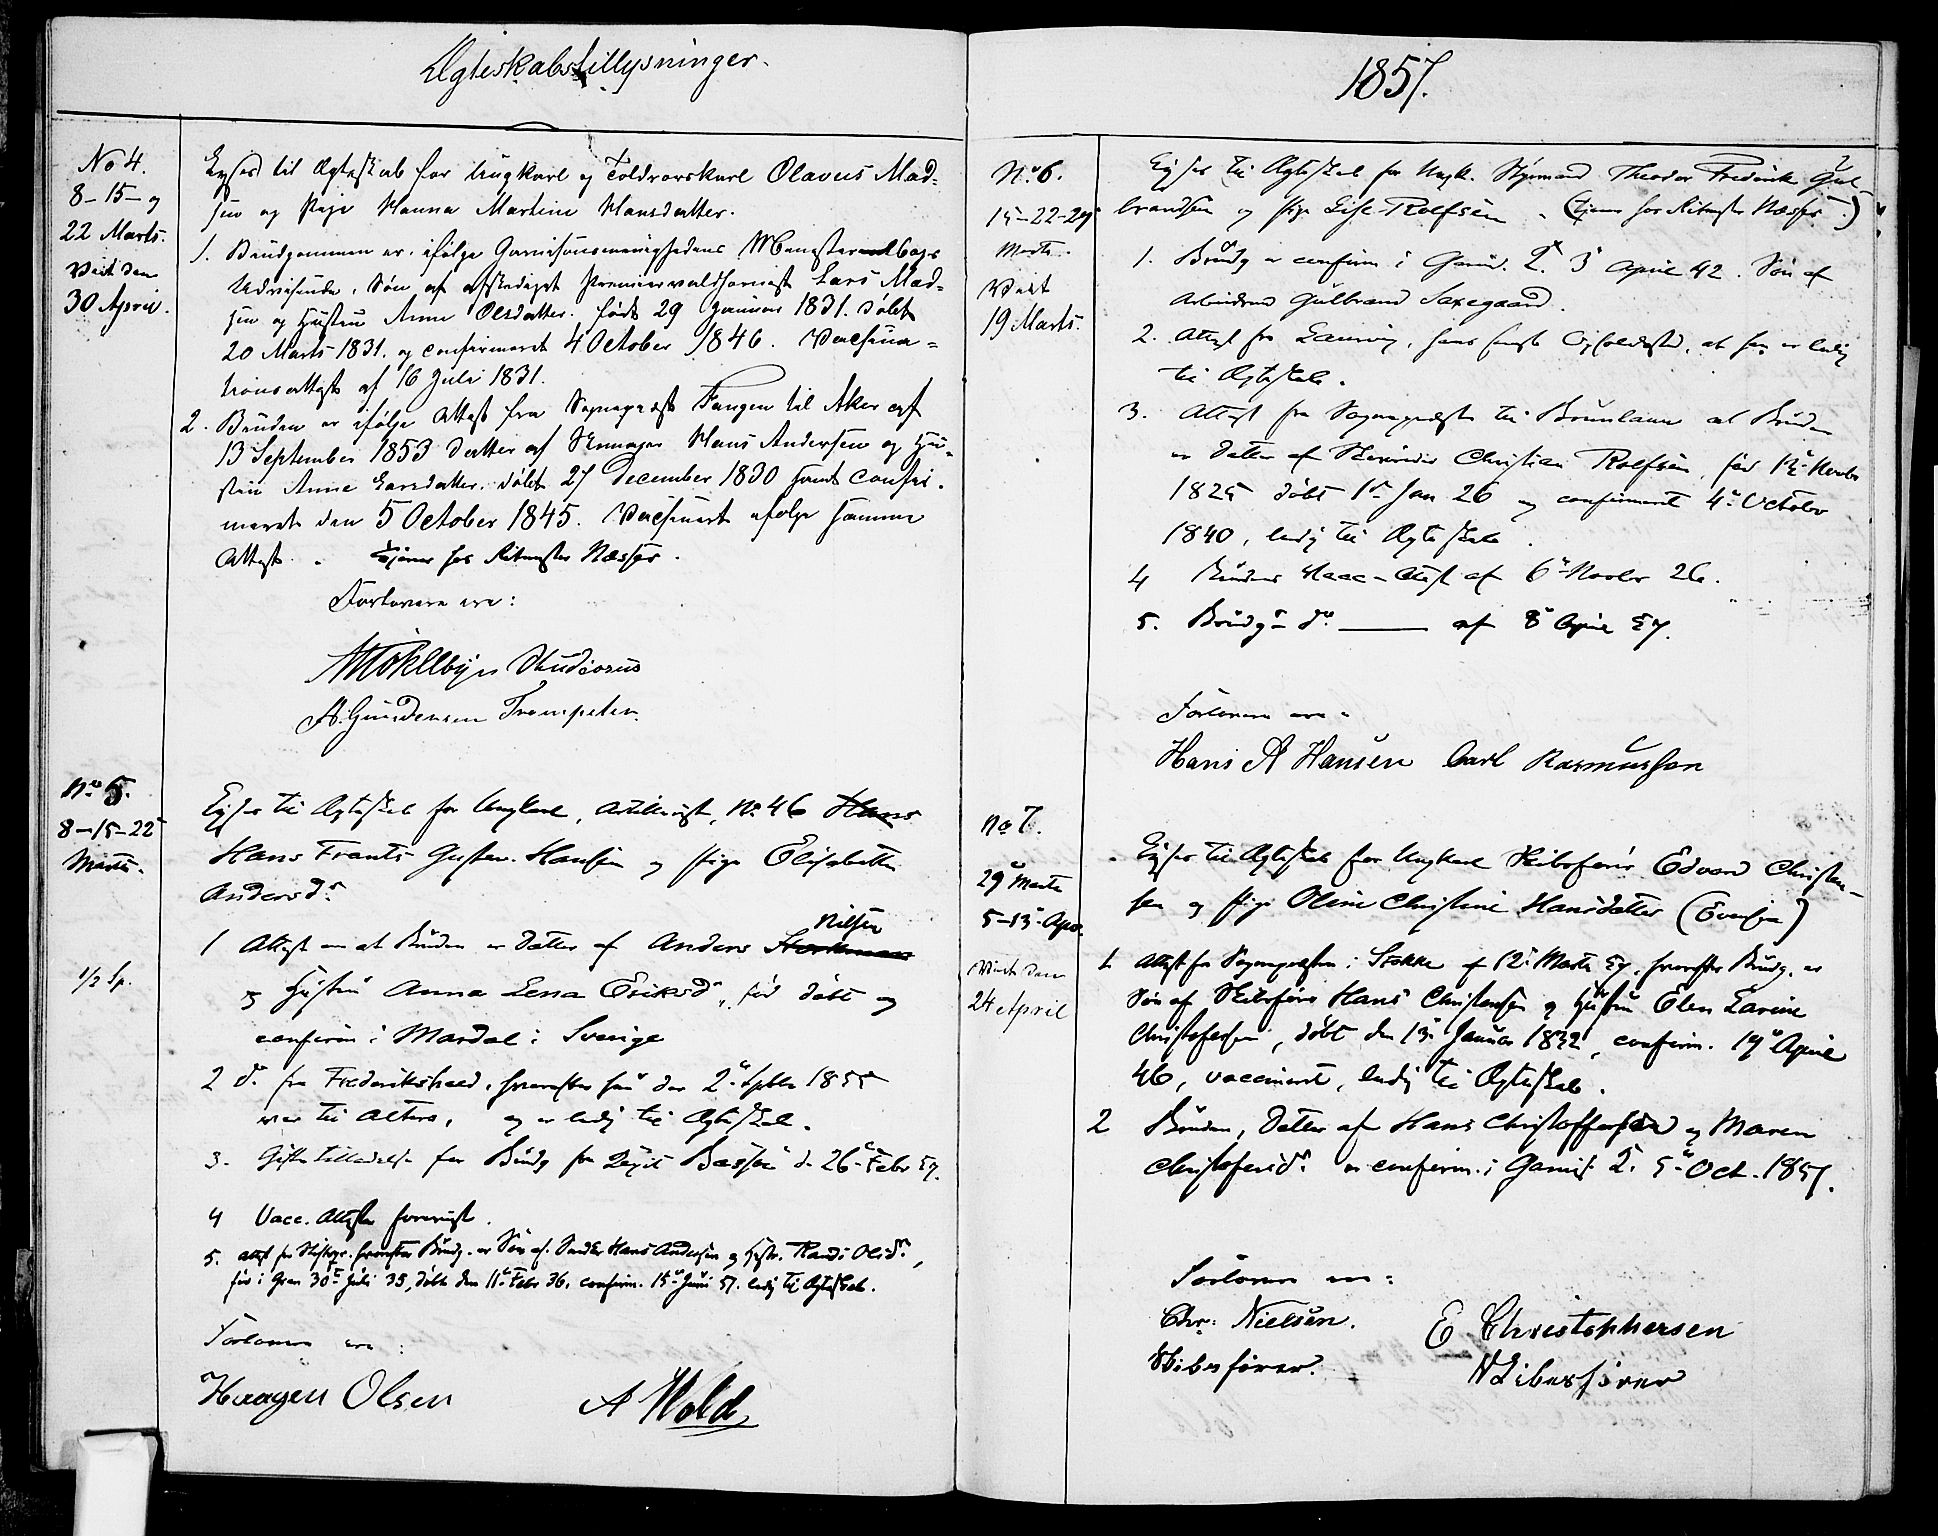 Ægteskabstillysninger.
No 4.
8-15- og
22 Marts.
Viet den
30 April.
Lyses til Ægteskab for Ungkarl og Toldrorskarl Olavus Mad-
sen og Pige Hanna Martine Hansdatter.
1. Brudgommen er, ifølge Garnisonsmenighedens Ministerialbogs
Udvisende, Søn af afskediget Premiervaldhornist Lars Mad-
sen og Hustru Anne Olsdatter. født 29 Januar 1831. døbt
20 Marts 1831. og confirmeret 4 October 1846. Vaccina-
tionsattest af 16 Juli 1831.
2. Bruden er ifølge Attest fra Sognepræst Fangen til Aker af
13 September 1853 Datter af Hans Andersen og Hu-
stru Anne Larsdatter. døbt 27 December 1830 samt confir-
meret den 5 October 1845. Vaccineret ifølge samme
Attest. Tjener hos Ritmester Næsser.
Forlovere ere:
Studiosus
A. Gundersen Trompeter.
No 5.
8-15-22
Marts.
1/2 Sp.
Lyses til Ægteskab for Ungkarl, Artillerist, No 46 Hans
Hans Frants Gustav Hansen og Pige Elisabeth
Andersdr
1 Attest om at Bruden er Datter af Anders Nilsen
og Hustru Anna Lena Eriksdr, født døbt og
confirm i Mardal i Sverige
2 do fra Frederikshald, hvorefter hun den 2 Septbr 1855
var til Alters, og er ledig til Ægteskab.
3. Giftetilladelse for Brudg fra Basse d. 26 Febr 57.
4 Vacc. Attester foreviist.
5. Attest fra hvorefter Brudg. er Søn af Hans Andersen og Hustr. Randi Olsdr,
født i Gran 30te Juli 35, døbt den 11te Febr 36, confirm. 15 Juni 51. ledig til Ægteskab.
Forlovere ere:
Haagen Olsen A Wold
1857.
No 6.
15-22-29
Marts.
Viet
19 Marts.
Lyses til Ægteskab for Ungk. Styrmand Theodor Frederik Gul-
brandsen og Pige Lise Rolfsen. (Tjener hos Ritmester Næsser.)
1. Brudg er confirm i Garnis. 3 April 42. Søn af
Arbeidsmd Gulbrand Saxegaard.
2. Attest fra Laurvig, hans sidste Opholdssted, at han er ledig
til Ægteskab.
3. Attest fra Sognepræsten til Brunlanes at Bruden
er Datter af Christian Rolfsen, fød 12 Novbr
1825 døbt 1 Jan 26 og confirmeret 4 October
1840, ledig til Ægteskab.
4 Brudens Vacc-Attest af 6 Novbr 26.
5. Brudg do af 8 April 57.
Forlovere ere:
Hans A Hansen Carl Rasmussen
No 7.
29 Marts
5-13 Apr.
Viet den
24 April
Lyses til Ægteskab for Ungkarl Skibsfører Edvard Christen-
sen og Pige Oline Christine Hansdatter (Evensen)
1. Attest fra Sognepræsten i Stokke af 12 Marts 57, hvorefter Brudg. er
Søn af Skibsfører Hans Christensen og Hustru Elen Larine
Christofersen, døbt den 13 Januar 1832, confirm. 19 April
46, vaccineret, ledig til Ægteskab.
2 Bruden, Datter af Hans Christoffersen og Maren
Christofersdr er confirm. i Garnis. 5 Oct. 1851.
Forlovere ere:
Chr: Nielsen. E Christophersen
Skibsfører. Skibsfører